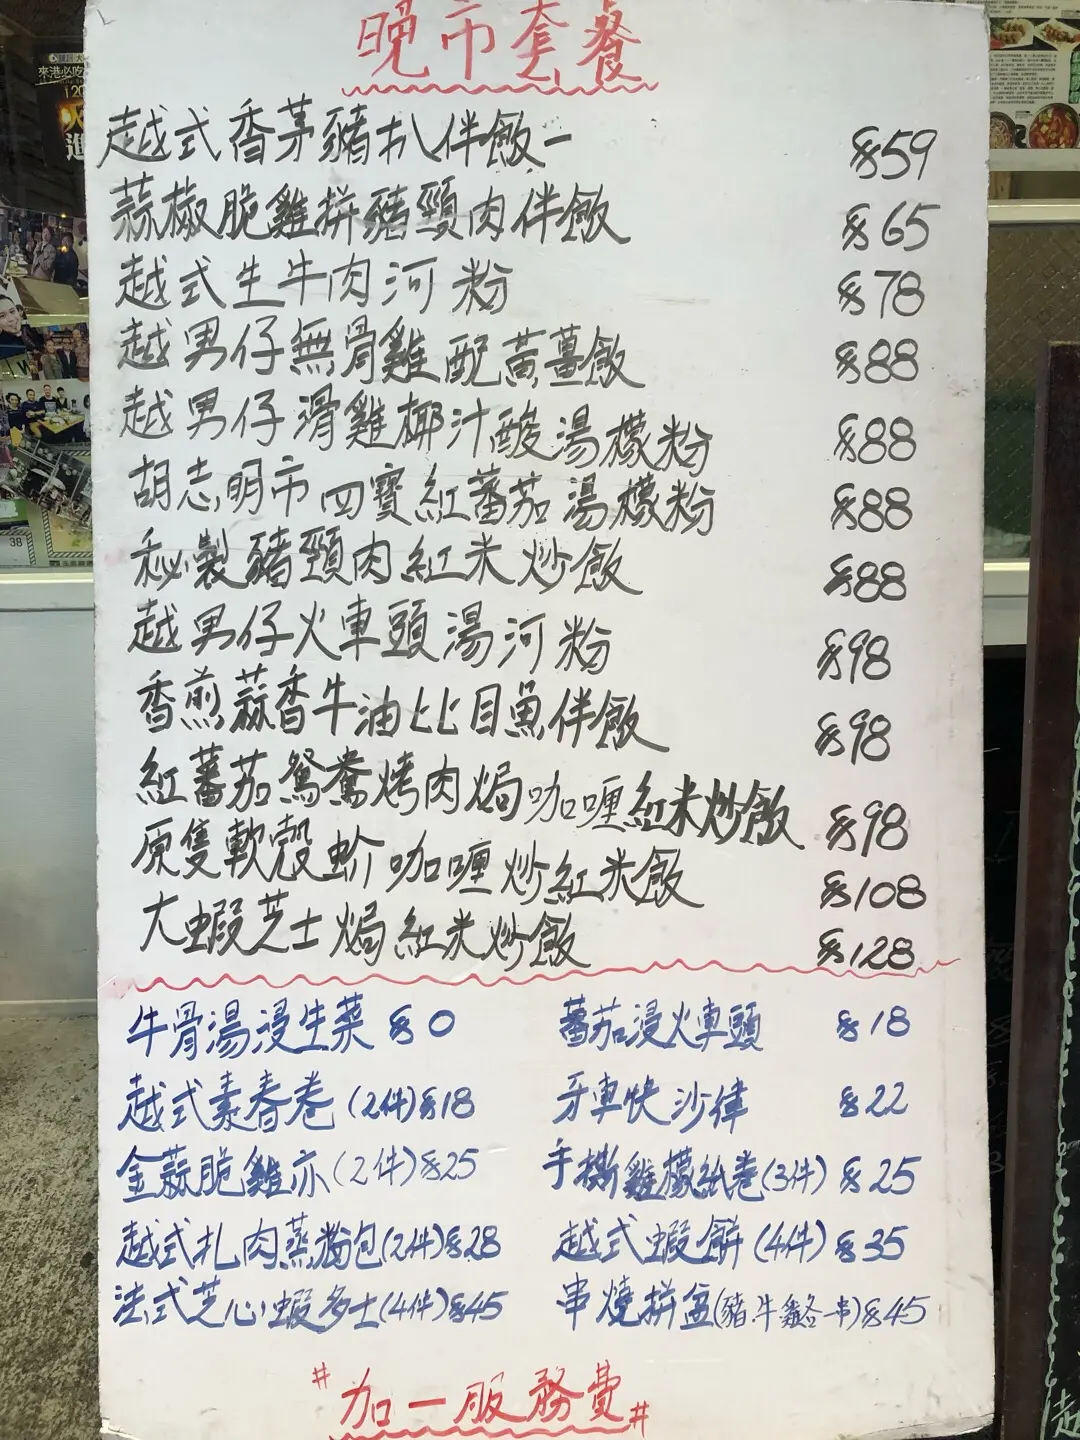 晚市套餐
越式香茅豬扒伴飯 $59
蒜椒脆雞拼豬頸肉伴飯 $65
越式生牛肉河粉 $78
越男仔無骨雞配黃薑飯 $88
越男仔滑雞椰汁酸湯檬粉 $88
胡志明市四寶紅蕃茄湯檬粉 $88
秘製豬頸肉紅米炒飯 $88
越男仔火車頭湯河粉 $98
香煎蒜香牛油比目魚伴飯 $98
紅蕃茄鴛鴦烤肉焗咖喱紅米炒飯 $98
原隻軟殼蚧咖喱炒紅米飯 $108
大蝦芝士焗紅米炒飯 $128
牛骨湯浸生菜 $0 蕃茄浸火車頭 $18
越式素春卷 (2件) $18 牙車快沙律 $22
金蒜脆雞亦 (2件) $25 手撕雞檬紙卷 (3件) $25
越式扎肉蒸粉包 (2件) $28 越式蝦餅 (4件) $35
法式芝心蝦多士 (4件) $45 串燒拼盆 (豬.牛雞各一串) $45
#加一服務費#
38